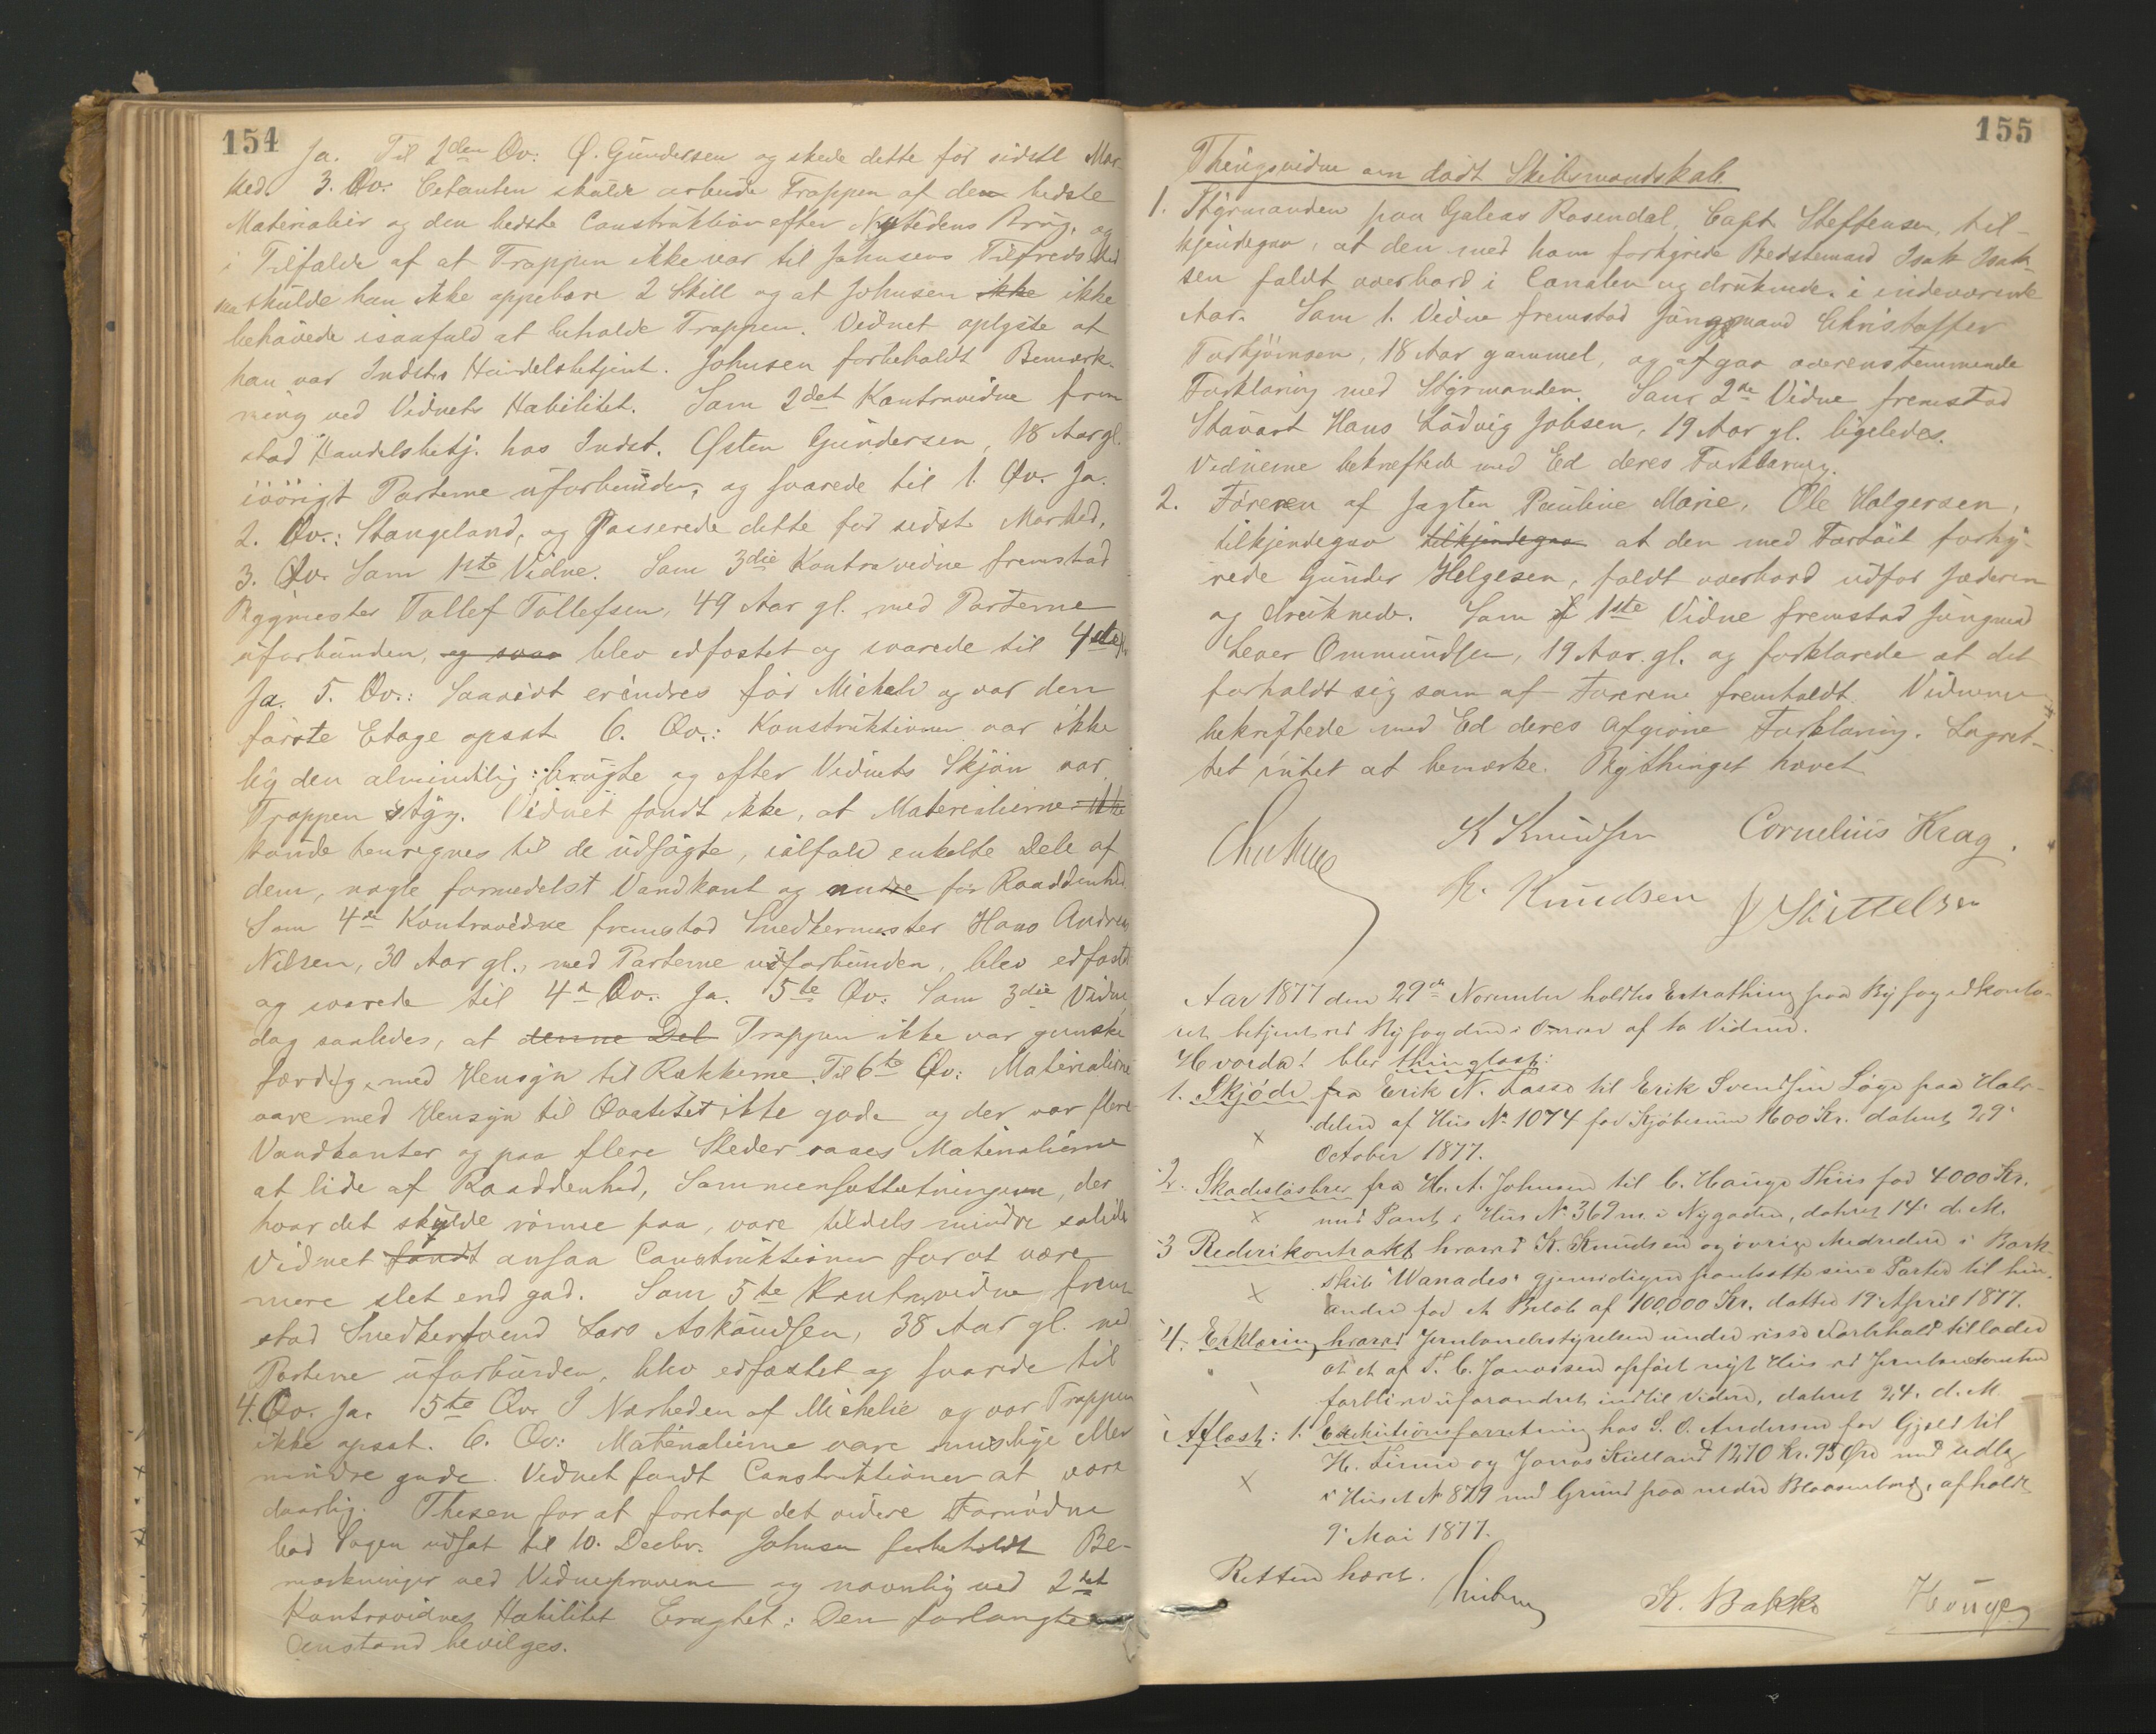 154
Ja. Til 2den Qv: Ø. Gundersen og skede dette før sidste Mar-
ked. 3. Qv: Citanten skulde arbeide Trappen af den bedste
Materialier og den bedste Construktion efter Nutidens Brug, og
i Tilfælde af at Trappen ikke var til Johnsens Tilfredshed
skulde han ikke oppebære 2 Skill og at Johnsen ikke ikke
behøvede isaafald at beholde Trappen. Vidnet oplyste at
han var Indst. Handelsbetjent. Johnsen forbeholdt Bemærk-
ning ved Vidnets Habilitet. Som 2det Kontravidne frem
stod Handelsbetj. hos Indst. Østen Gundersen, 18 Aar gl.
iøvrigt Parterne uforbunden, og svarede til 1. Qv. Ja.
2. Qv.: Stangeland, og passerede dette før sidste Marked,
3. Qv. Som 1ste Vidne. Som 3die Kontravidne fremstod
Bygmester Tollef Tollefsen, 49 Aar gl. med Parterne
uforbunden, og svar blev edfæstet og svarede til 4de Qv.
Ja. 5. Qv.: Saavidt erindres før Micheli og var den
første Etage opsat. 6. Qv.: Konstruktionen var ikke
lig den almindelig brugte og efter Vidnets Skjøn var
Trappen styg. Vidnet fandt ikke, at Materialierne ikke
kunde henregnes til de udsøgte, ialfald enkelte Dele af
dem, nogle formedelst Vandkant og andre for Raaddenhed
Som 4de Kontravidne fremstod Snedkermester Hans Andreas
Nilsen, 30 Aar gl., med Parterne uforbunden, blev edfæstet
og svarede til 4de Qv. Ja. 5te Qv: Som 3die Vidne,
dog saaledes, at denne Del Trappen ikke var ganske
færdig, med Hensyn til Rækkerne. Til 6te Qv: Materialierne
vare med Hensyn til Qvalitet ikke gode og der var flere
Vandkanter og paa flere Steder saaes Materialierne
at lide af Raaddenhed, Sammensættetningerne, der
hvor det skulde røines paa, vare tildels mindre solide
Vidnet fandt ansaa Construktionen for at være
mere slet end god. Som 5te Kontravidne frem-
stod Snedkersvend Lars Askoudsen, 38 Aar gl. med
Parterne uforbunden, blev edfæstet og svarede til
4. Qv. Ja. 5te Qv. I Nærheden af Michelie og var Trappen
ikke opsat. 6. Qv: Materialierne vare mislige eller
mindre gode. Vidnet fandt Constructionen at være
daarlig. Thesen for at foretage det videre Fornødne
bad Sagen udsat til 10. Decbr. Johnsen forbeholdt Be-
mærkninger ved Vidneprovene og navnlig ved 2det
Kontravidnes Habilitet Eragtet: Den forlangte
Anstand bevilges.
155
Thingsvidne om dødt Skibsmandskab.
1. Styrmanden paa Galeas Rosendal, Capt. Steffensen, til-
kjendegav, at den med ham forhyrede Bedstemand Isak Isak-
sen faldt overbord i Canalen og druknede, i indeværende
Aar. Som 1. Vidne fremstod Jungmand Christoffer
Torbjørnsen, 18 Aar gammel, og afgav overensstemmende
Forklaring med Styrmanden. Som 2de Vidne fremstod
Stuart Hans Ludvig Jobsen, 19 Aar gl. ligeledes.
Vidnerne bekræftede med Ed deres Forklaring.
2. Føreren af Jagten Pauline Marie, Ole Holgersen,
tilkjendegav tilkjendegav at den med Fartøit forhy-
rede Gunder Helgesen, faldt overbord udfor Jæderen
og druknede. Som 1ste Vidne fremstod Jungmd
Lever Ommundsen, 19 Aar gl. og forklarede at det
forholdt sig som af Føreren fremholdt. Vidnerne
bekræftede med Ed deres afgivne Forklaring. Lagret-
tet intet at bemærke. Bythinget hævet
K Knudsen Cornelius Krag.
K. Knudsen J Kittelsen
Aar 1877 den 29de November holdtes Extrathing paa Byfogedkonto-
ret, betjent ved Byfogden i Overvær af to Vidner.
Hvorda! blev thinglæst:
1. Skjøde fra Erik N. Lasse til Erik Svendsen Løge paa Halv-
delen af Hus No 1074 for Kjøbesum 1600 Kr. dateret 29.
x October 1877.
2. Skadesløsbrev fra H. A. Johnsen til C. Hauge Thiis for 4000 Kr.
x med Pant i Hus No 369 m. i Nygaden, dateret 14. d. M.
3 Rederikontrakt hvorved K. Knudsen og øvrige Medredere i Bark-
skib "Wanadis" gjensidigen pantsætte sine Parter til hin-
x anden for et Beløb af 100,000 Kr. datted 19. April 1877.
4. Erklæring hvorved Jernbanebestyrelsen under visse Forbehold tillader
at et af T. C. Jonassen opført nyt Hus ved Jernbanetomten
forblive uforandret indtil videre, dateret 24. d. M.
Aflæst: 1. Exekutionsforretning hos S. O. Andersen for Gjæld til
H. Finne og Jonas Kielland 1270 Kr. 95 Øre med Udlæg
x i Huset No 879 med Grund paa nedre Blaasenborg, afholdt
9. Mai 1877.
Retten hævet.
K. Bakke Hauge